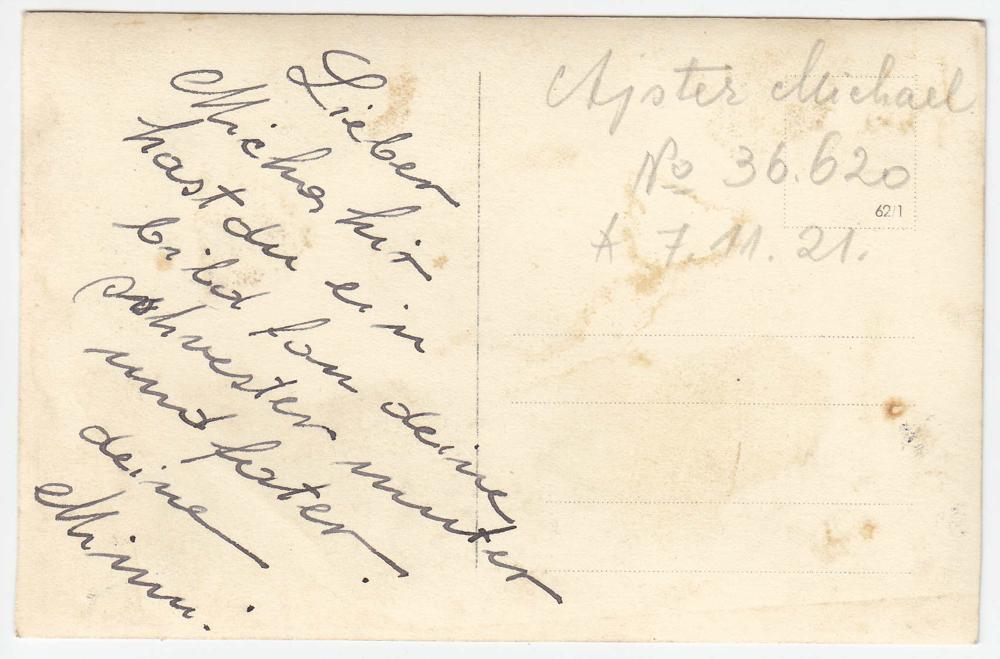 Lieber
Micha hir
hast du ein
bild fon deine
schvester muter
und fater.
deine
Mimi.
Ajster Michael
No 36.620
A 7.11.21.
62/1